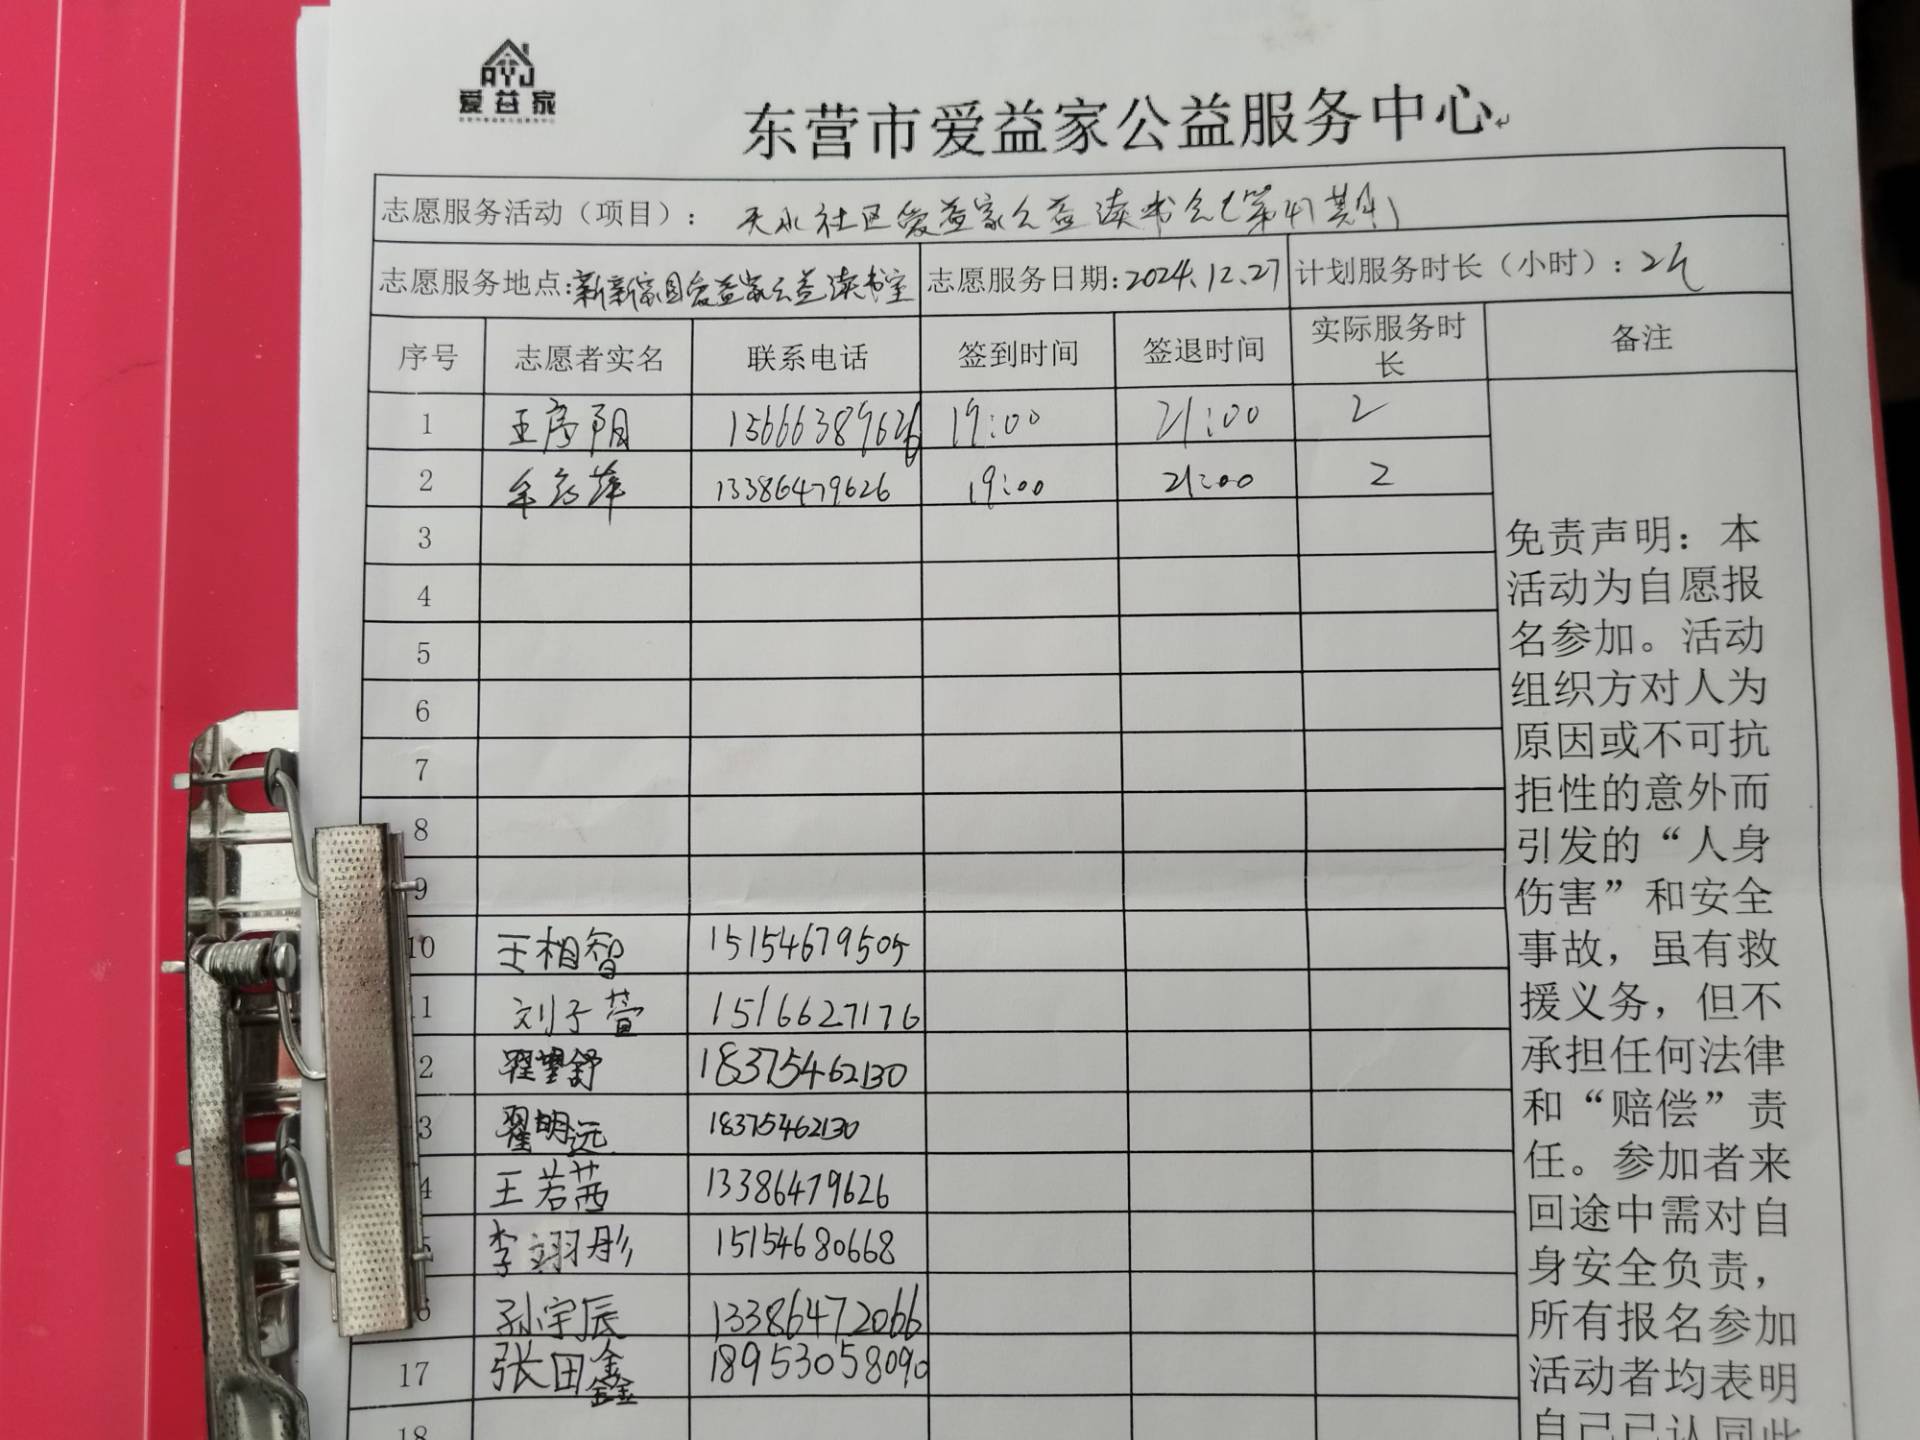 AYJ
爱益家
东营市爱益家公益服务中心
志愿服务活动（项目）： 天水社区爱益家公益读书会（第41期）
志愿服务地点：新新家园爱益家公益读书室 志愿服务日期：2024.12.27 计划服务时长（小时）：2个
序号 志愿者实名 联系电话 签到时间 签退时间 实际服务时长 备注
1 王序阳 15666389626 19:00 21:00 2
2 牟 萍 13386479626 19:00 21:00 2
3
4
5
6
7
8
9
10 王相智 15154679505
11 刘子萱 1516627176
2 翟望舒 18375462130
3 翟明远 18375462130
4 王若茜 13386479626
5 李翊彤 15154680668
6 孙宇辰 13386472066
17 张田鑫 18953058090
18
免责声明：本
活动为自愿报
名参加。活动
组织方对人为
原因或不可抗
拒性的意外而
引发的“人身
伤害”和安全
事故，虽有救
援义务，但不
承担任何法律
和“赔偿”责
任。参加者来
回途中需对自
身安全负责，
所有报名参加
活动者均表明
自己已认同此